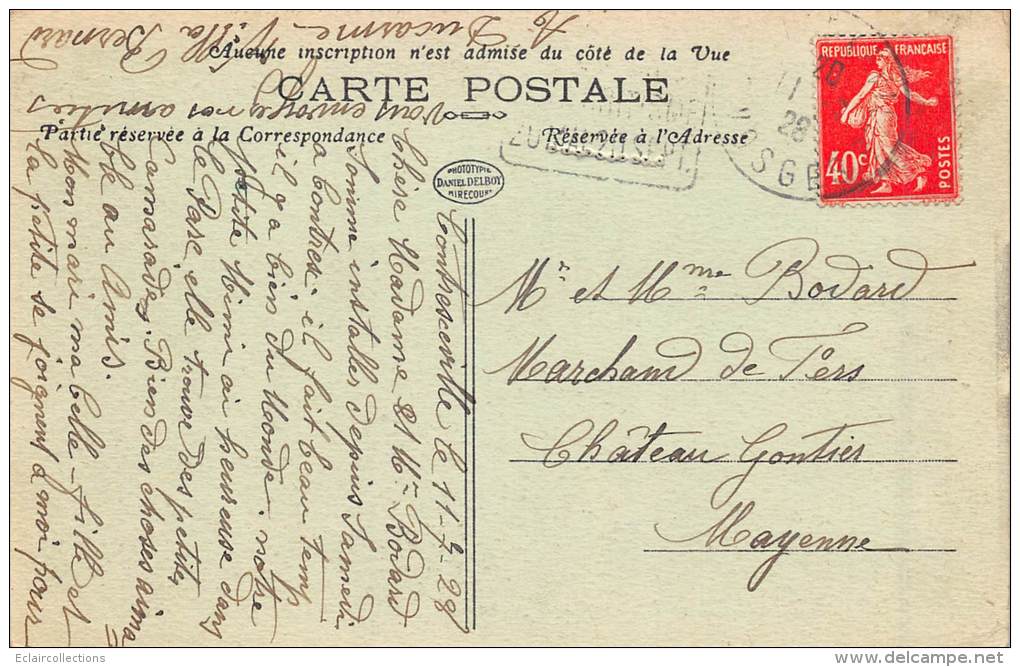 Aucune inscription n'est admise du côté de la Vue
CARTE POSTALE
Partie réservée à la Correspondance
Réservée à l'Adresse
PHOTOTYPIE
DANIEL DELBOY
MIRECOURT
REPUBLIQUE FRANÇAISE
40c
POSTES
28
Mr et Mme Bodard
Marchand de Fers
Château Gontier
Mayenne
Contrexeville le 11-7-28
Chère Madame et Mr Bodard
Somme installés depuis Samedi
a Contrex. il fait beau temps
il y a bien du Monde. notre
petite Mimi ai heureuse dans
le Parc elle trouve des petites
Camarades. Bien des choses aima
ble au Amis.
Mon mari ma belle-fille et
la petite se joignent a moi pour
vous envoyer nos amitiés
A Ducasme
Villa Bernard
Eclaircollections